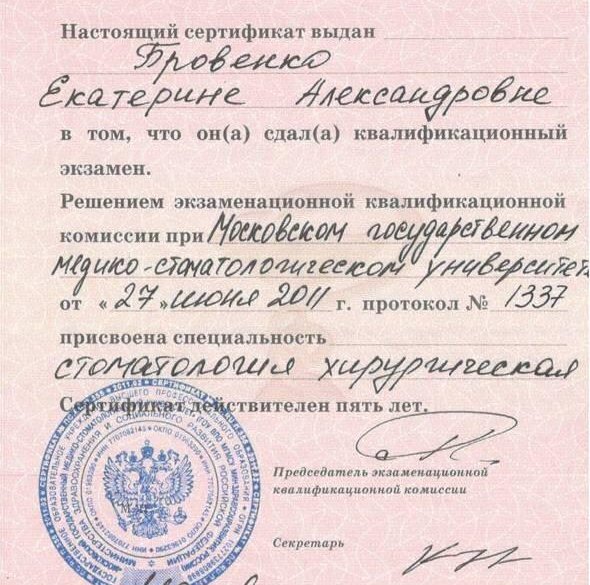 Настоящий сертификат выдан
Бровенко
Екатерине Александровне
в том, что он(а) сдал(а) квалификационный
экзамен.
Решением экзаменационной квалификационной
комиссии при Московском государственном
медико-стоматологическом университете
от «27» июня 2011 г. протокол № 1337
присвоена специальность
стоматология хирургическая
Сертификат действителен пять лет.
Председатель экзаменационной
квалификационной комиссии
Секретарь